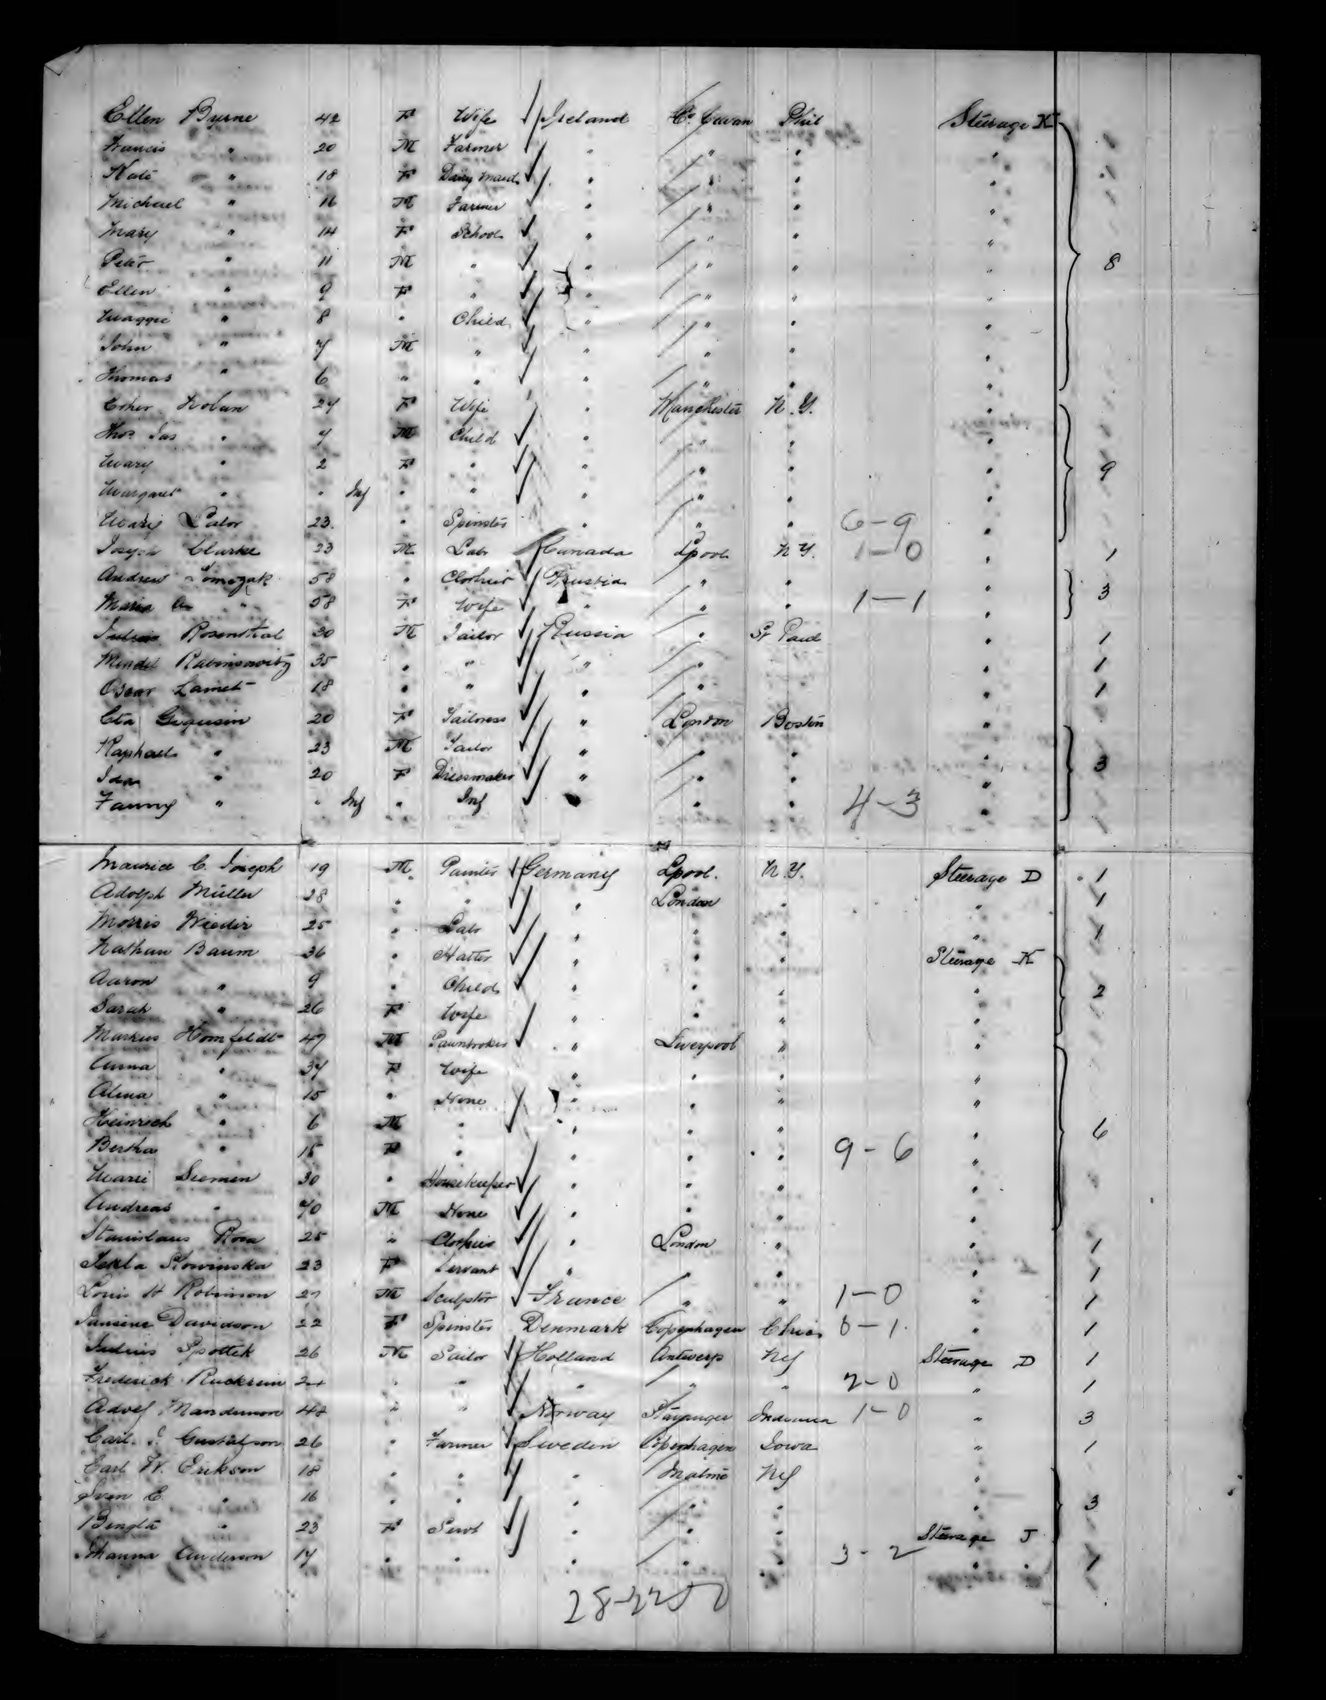 Ellen Byrne 42 F Wife Ireland Co. Cavan Phil Steerage K
Francis " 20 M Farmer " " " "
Kate " 18 F Dairy Maid " " " "
Michael " 16 M Farmer " " " "
Mary " 14 F School " " " "
Peter " 11 M " " " " "
Ellen " 9 F " " " " " 8
Maggie " 8 " Child " " " "
John " 7 M " " " " "
Thomas " 6 " " " " " "
Nolan 27 F Wife " Manchester N.Y. "
Thos Jas " 7 M Child " " " "
Mary " 2 F " " " " " 9
Margaret " " Inf " " " " " "
Mary Lalor 23 " Spinster " " " 6-9 "
Joseph Clarke 23 M Labr Canada Lpool N.Y. 1-0 " 1
Andrew Tomczak 58 " Clothier Prussia " " "
Maria " 58 F Wife " " " 1-1 " 3
Rosenthal 30 M Tailor Russia " St Paul " 1
Mendel Rabinowitz 35 " " " " " 1
Oscar 18 " " " " " 1
20 F Tailoress " London Boston "
Raphael " 23 M Tailor " " " "
Ida " 20 F Dressmaker " " " " 3
Fanny " " Inf " Inf " " " 4-3 "
Maurice C. Joseph 19 M Painter Germany Lpool. N.Y. Steerage D 1
Adolph Müller 28 " " " London " " 1
Morris Wieder 25 " Labr " " " " 1
Nathan Baum 36 " Hatter " " " Steerage K
Aaron " 9 " Child " " " " 2
Sarah " 26 F Wife " " " "
Markus Homfeldt 47 M Pawnbroker " Liverpool " "
Anna " 37 F Wife " " " "
Alma " 15 " None " " " "
Heinrich " 6 M " " " " " 6
Bertha " 15 F " " " " 9-6 "
Marie Siemen 30 " Housekeeper " " " "
Andreas " 70 M None " " " "
Stanislaus 25 " Clothier " London " " 1
Tekla 23 F Servant " " " " 1
Louis H Robinson 27 M Sculptor France " " 1-0 " 1
Davidson 22 F Spinster Denmark Copenhagen 0-1 " 1
Julius 26 M Sailor Holland Antwerp NY Steerage D 1
Frederick " " " " " 2-0 " 1
48 " " Norway Stavanger Indiana 1-0 " 3
Carl J. Gustafson 26 " Farmer Sweden Copenhagen Iowa " 1
Carl W. Erikson 18 " " " Malmo NY "
Sven E " 16 " " " " " " 3
Bengta " 23 F Servt " " " Steerage J
Johanna Anderson 17 " " " " " 3-2 " 1